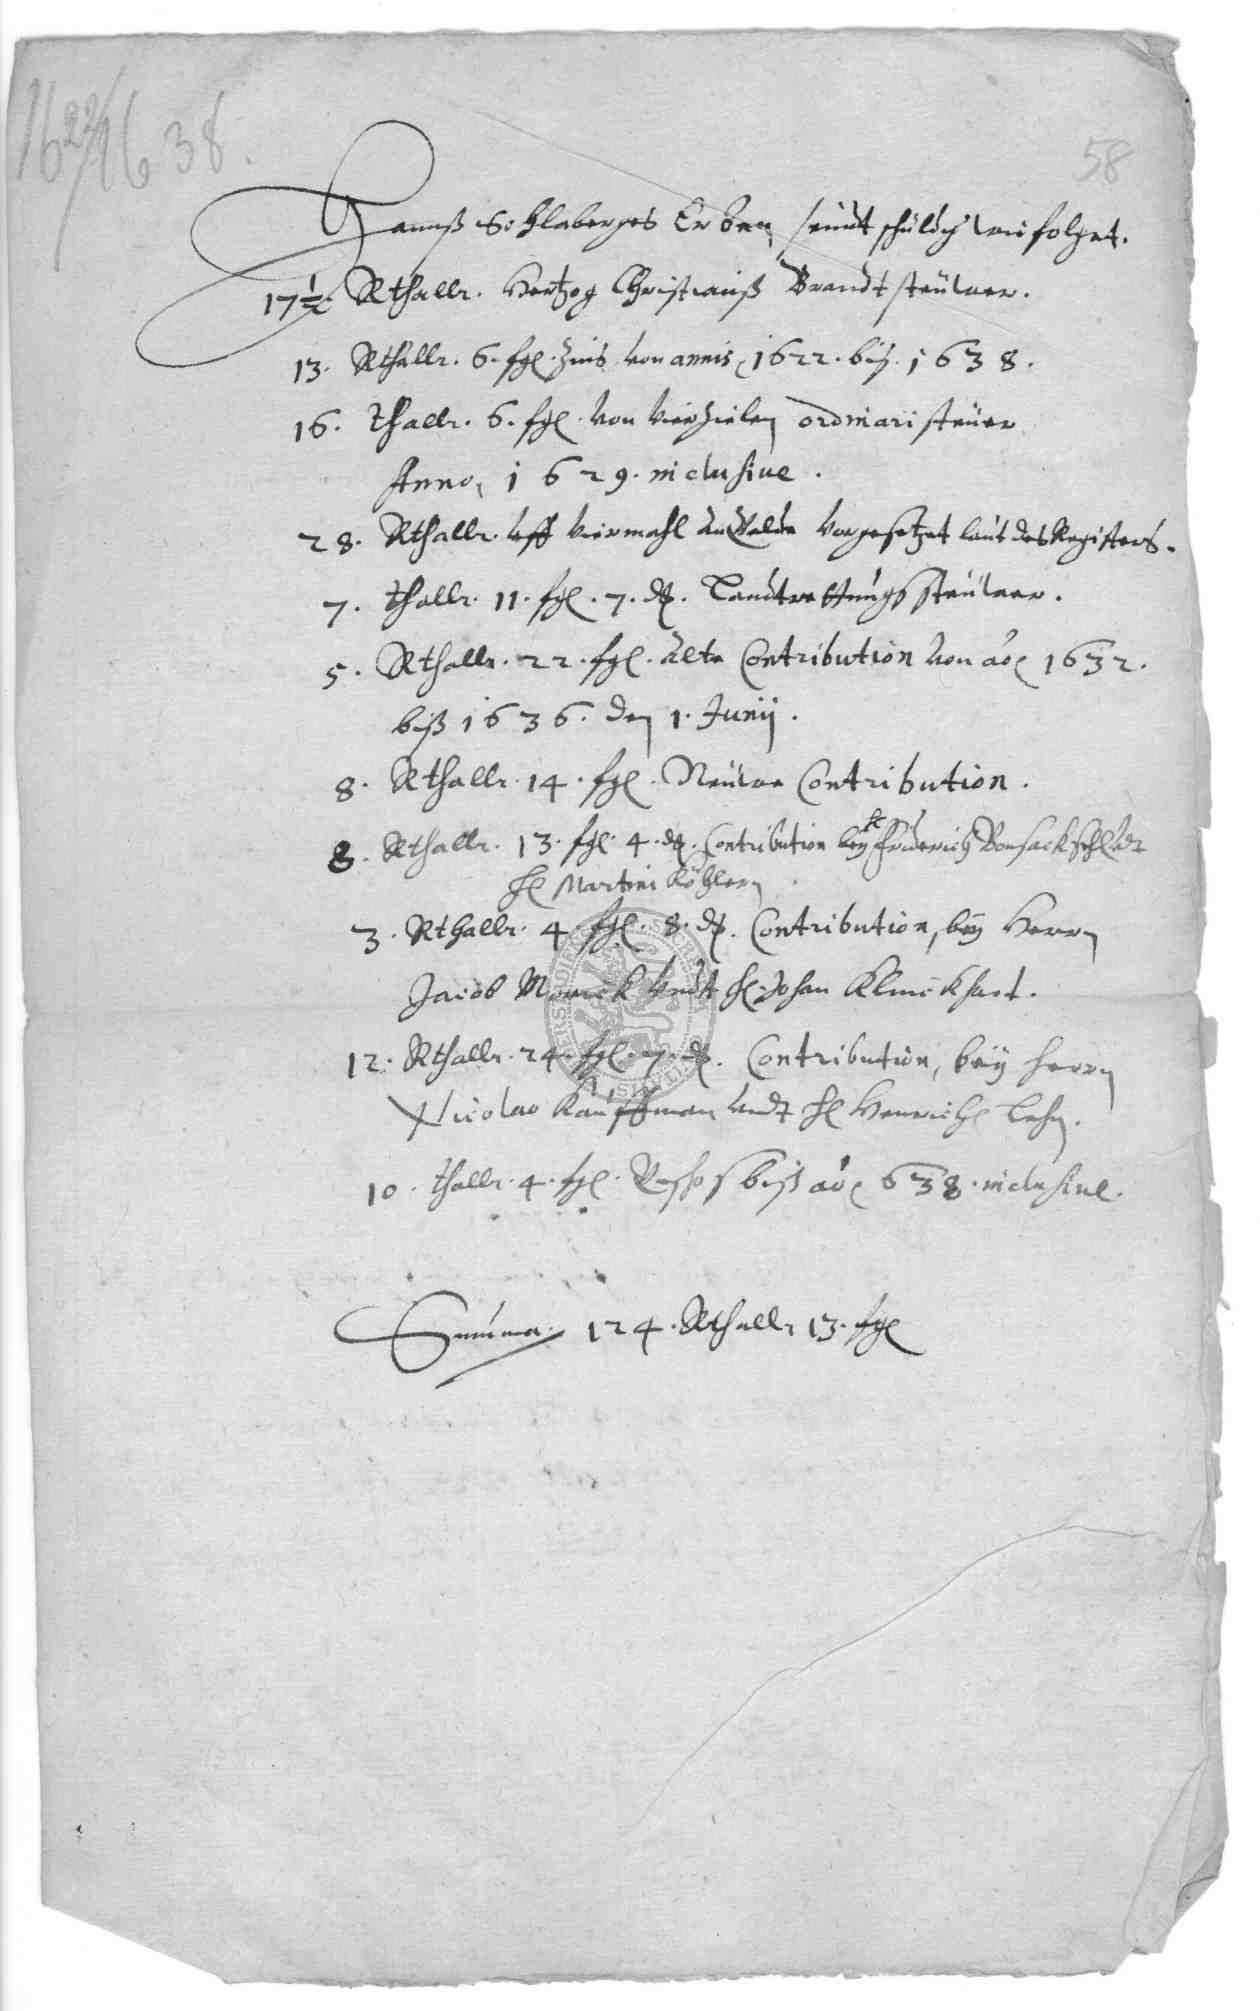 1622/1638.
58
Hannß Schlaberges Erben seindt schuldig wie folget.
17½ Rthallr. Hertzog Christianß Brandtsteüwer.
13. Rthallr. 6. fgl. Zins von annis 1622. biß. 1638.
16. thallr. 6. fgl. von vier Zielen ordinari steüer
Anno, 1629. inclusive.
28. Rthallr. uff viermahl vorgesetzet laut des Registers.
7. thallr. 11. fgl. 7. ₰. Landtrettungssteüwer.
5. Rthallr. 22. fgl. alte Contribution von ao 1632.
biß 1636. den 1. Junij.
8. Rthallr. 14. fgl. Neüwe Contribution.
8. Rthallr. 13. fgl. 4. ₰. Contribution bey H Friderich Bonsack
H Martini Köhlern
3. Rthallr. 4 fgl. 8. ₰. Contribution, bey Herrn
Jacob undt H. Johan Klinckhart.
12. Rthallr. 24. fgl. 7. ₰. Contribution, bey Herrn
Nicolao Kauffman undt H Henrich Lehn.
10. thallr. 4. fgl. biß ao 638. inclusive.
Summa. 124. Rthallr 13. fgl